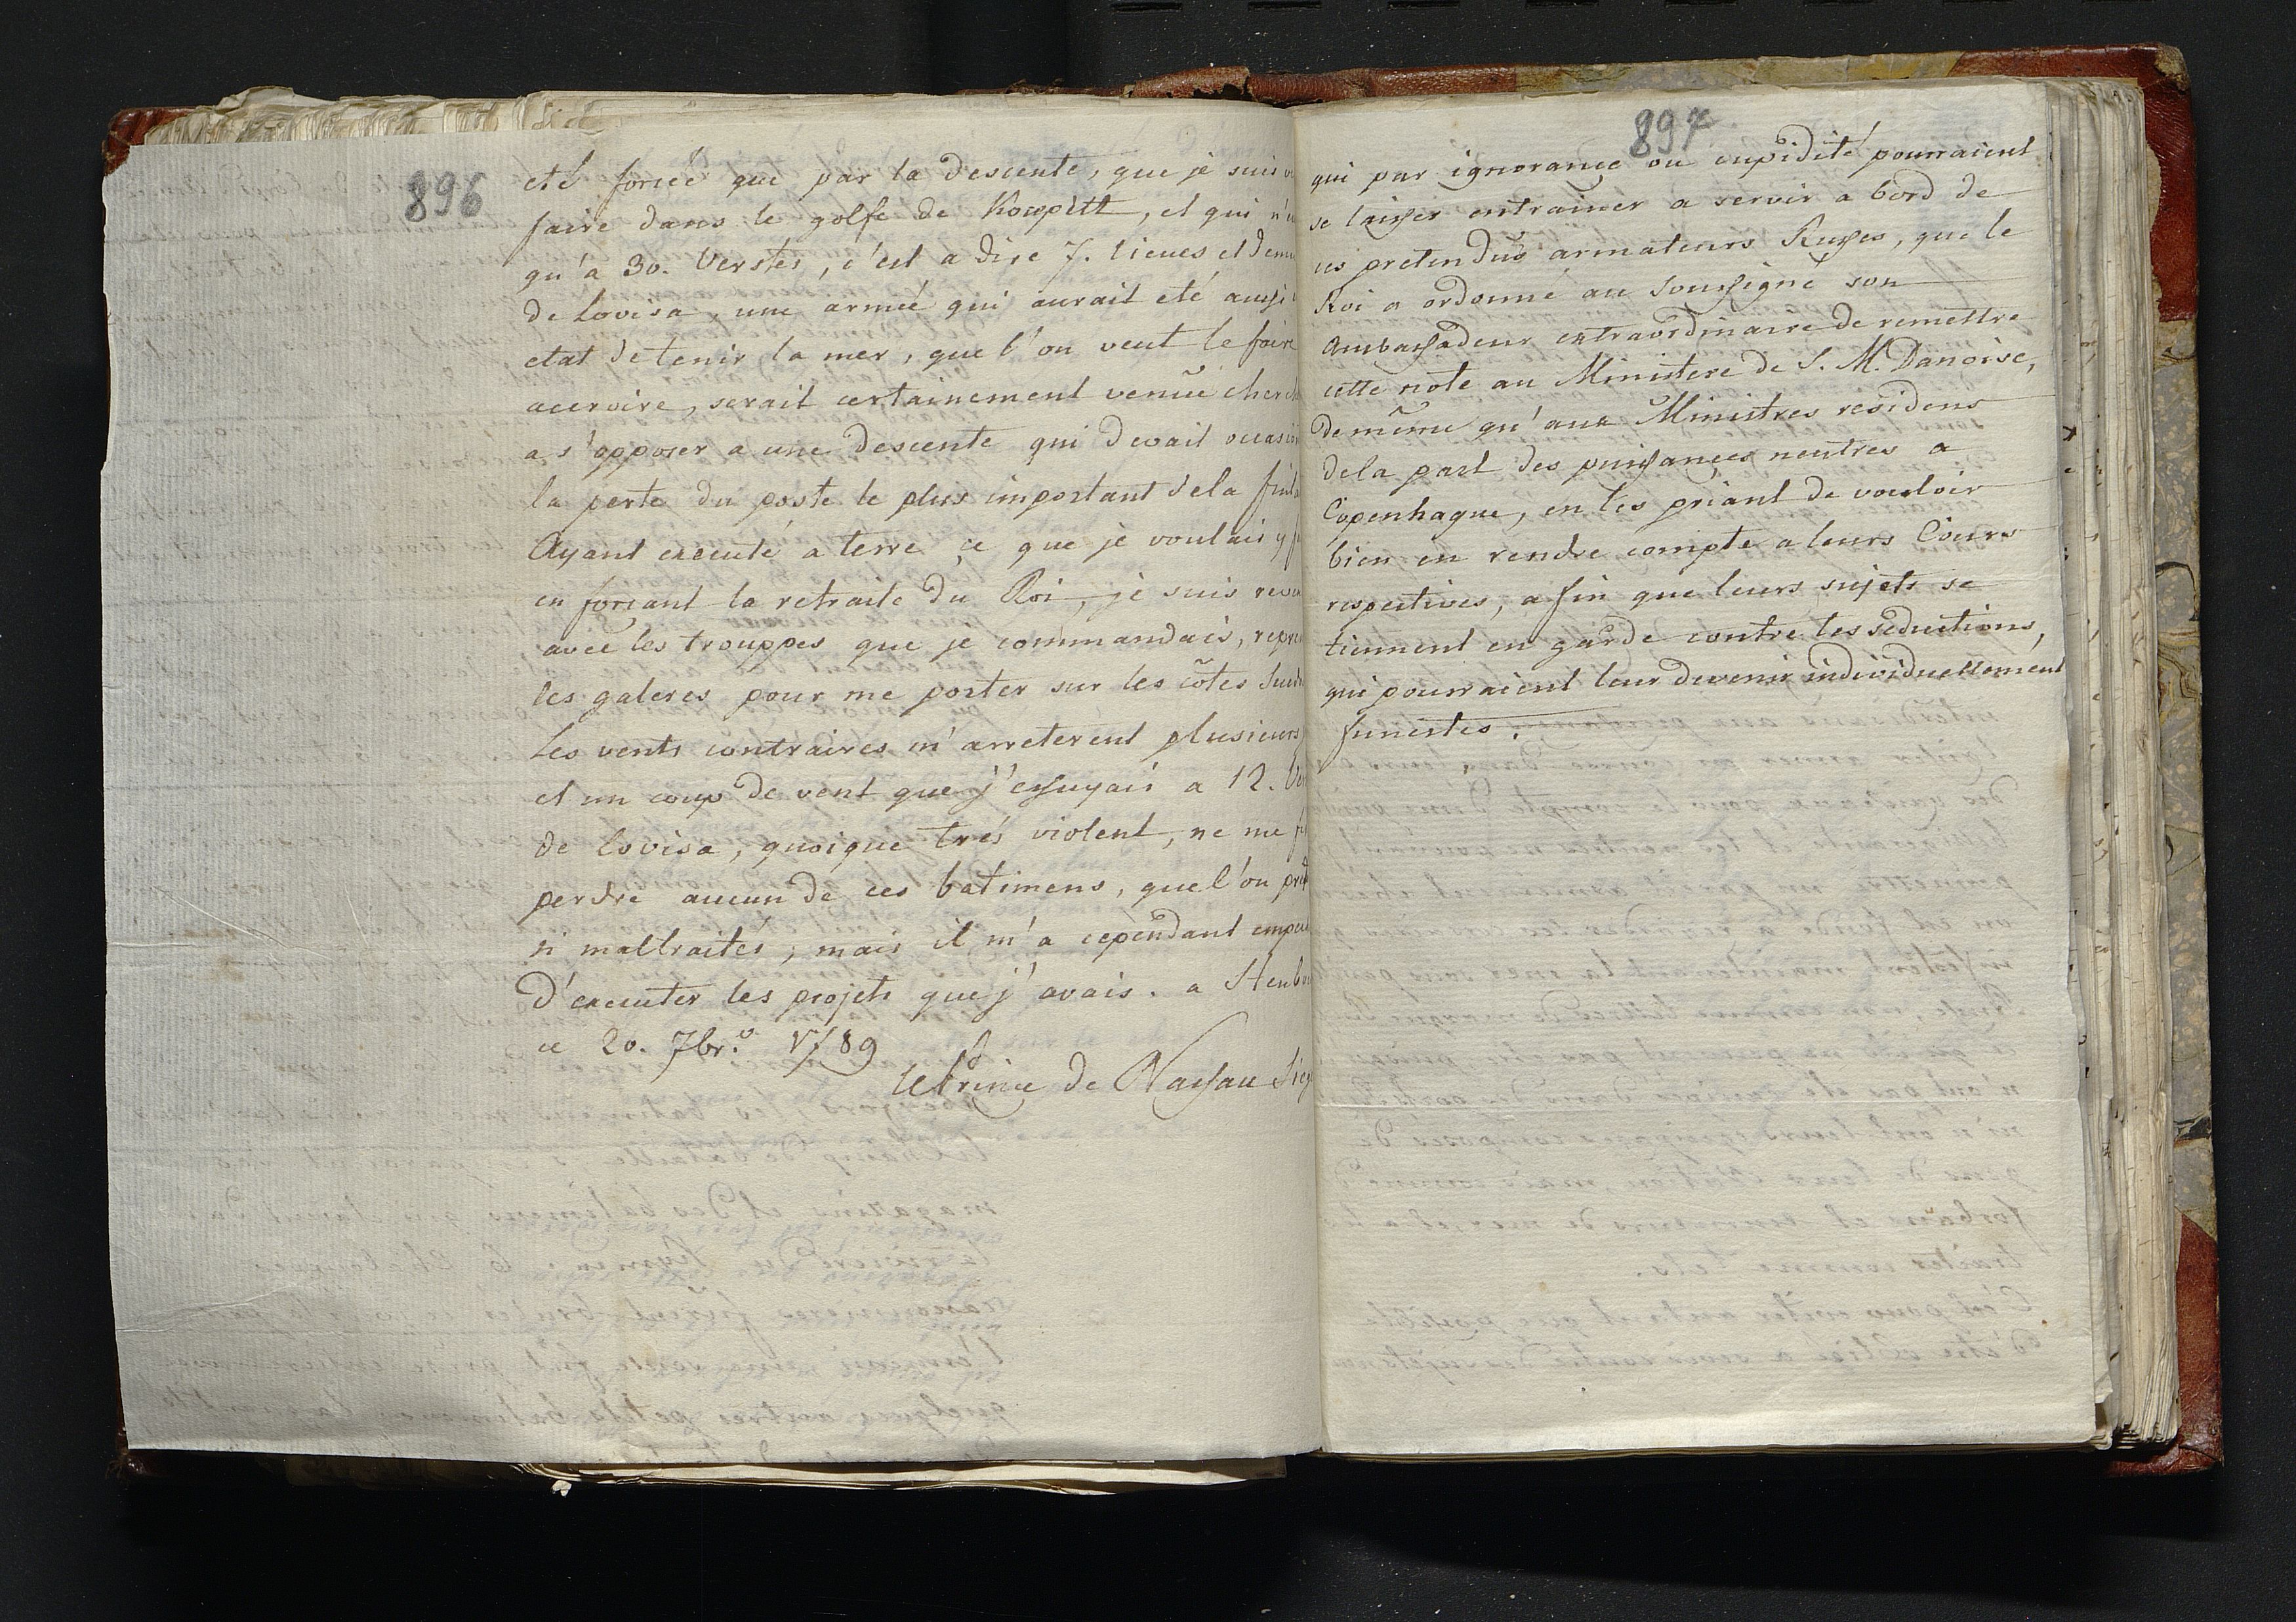 896
eté forcée que par la descente, que je suis
faire dans le golfe de Koupitt, et qui n'
qu'a 30. Verstes, c'est a dire 7. lieues et dem
de Lovisa, une armée qui aurait eté aussi
etat de tenir la mer, que l'on veut le faire
accroire, serait certainement venüe cherch
a s'opposer a une descente qui devait occasi
la perte du poste le plus important de la finl
Ayant executé a terre ce que je voulais y
en forcant la retraite du Roi, je suis reve
avec les trouppes que je commandais, repre
les galeres pour me porter sur les côtes Sued
Les vents contraires m'arreterent plusieurs
et un coup de vent que j'essuyais a 12. Ver
de Lovisa, quoique trés violent, ne me f
perdre aucun de ces batimens, que l'on pret
si maltraités; mais il m'a cependant empec
d'executer les projets que j'avais. a Stenb
ce 20. 7br.e 1789
le Prince de Nassau Sieg
897
qui par ignorance ou cupidité pourraient
se laisser entrainer a servir a bord de
ces pretendûs armateurs Russes, que le
Roi a ordonné au Soussigné son
Ambassadeur extraordinaire de remettre
cette note au Ministere de S. M. Danoise,
de même qu'aux Ministres residens
de la part des puissances neutres a
Copenhague, en les priant de vouloir
bien en rendre compte a leurs Cours
respectives, afin que leurs sujets se
tiennent en garde contre les seductions,
qui pourraient leur devenir individuellement
funestes.